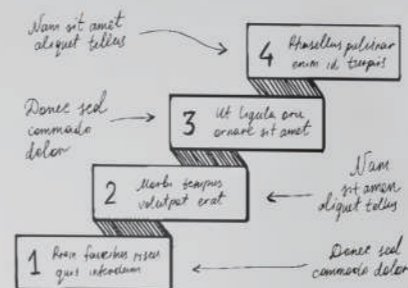 Nam sit amet
aliquet tellus
4 Phasellus pulvinar
enim id turpis
Donec sed
commodo
dolor
3 Ut ligula orci
ornare sit amet
2 Morbi tempus
volutpat erat
Nam
sit amen
aliquet tellus
1 Proin faucibus risus
quis interdum
Donec sed
commodo dolor